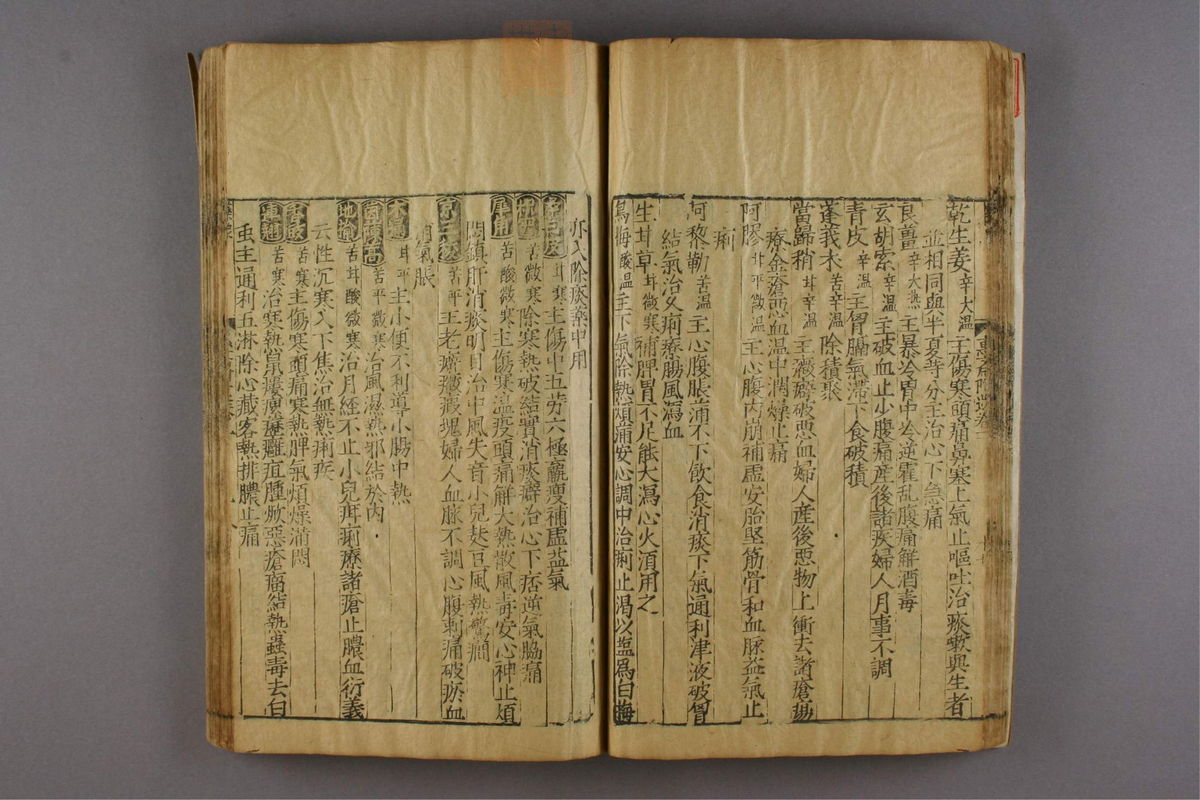 乾生姜辛大温主傷寒頭痛鼻塞上氣止嘔吐治痰嗽與生者
並相同與半夏等分主治心下急痛
良薑辛大熱主暴冷胃中冷逆霍乱腹痛解酒毒
玄胡索辛温主破血止少腹痛産後諸疾婦人月事不調
青皮辛温主胃膈氣滯下食破積
蓬莪朮苦辛温除積聚
當歸稍甘辛温主癥癖破惡血婦人産後惡物上衝去諸瘡瘍
療金瘡惡血温中潤燥止痛
阿膠甘平微温主心腹内崩補虚安胎堅筋骨和血脉益氣止
痢
訶黎勒苦温主心腹脹滿不下飲食消痰下氣通利津液破胃
結氣治久痢療腸風瀉血
生甘草甘微寒補脾胃不足能大瀉心火須用之
烏梅酸温主下氣除熱煩滿安心調中治痢止渴以塩爲白梅
亦入除痰藥中用
甘寒主傷中五劳六極羸瘦補虚益氣
苦微寒除寒熱破結實消痰癖治心下痞逆氣脇痛
犀角苦酸微寒主傷寒温疫頭痛解大熱散風毒安心神止煩
悶鎮肝消痰明目治中風失音小兒麸豆風熱驚癇
京三稜苦平主老癖癥瘕塊婦人血脉不調心腹刺痛破瘀血
消氣脹
木通甘平主小便不利導小腸中熱
苦平微寒治風濕熱邪結於内
地榆苦甘酸微寒治月經不止小兒疳痢療諸瘡止膿血衍義
云性沉寒入下焦治血熱痢疾
苦寒主傷寒頭痛寒熱脾氣煩燥滿悶
連翹苦寒治寒熱鼠瘻瘰癧癰疽腫惡瘡瘤結熱蠱毒去白
虫主通利五淋除心藏客熱排膿止痛